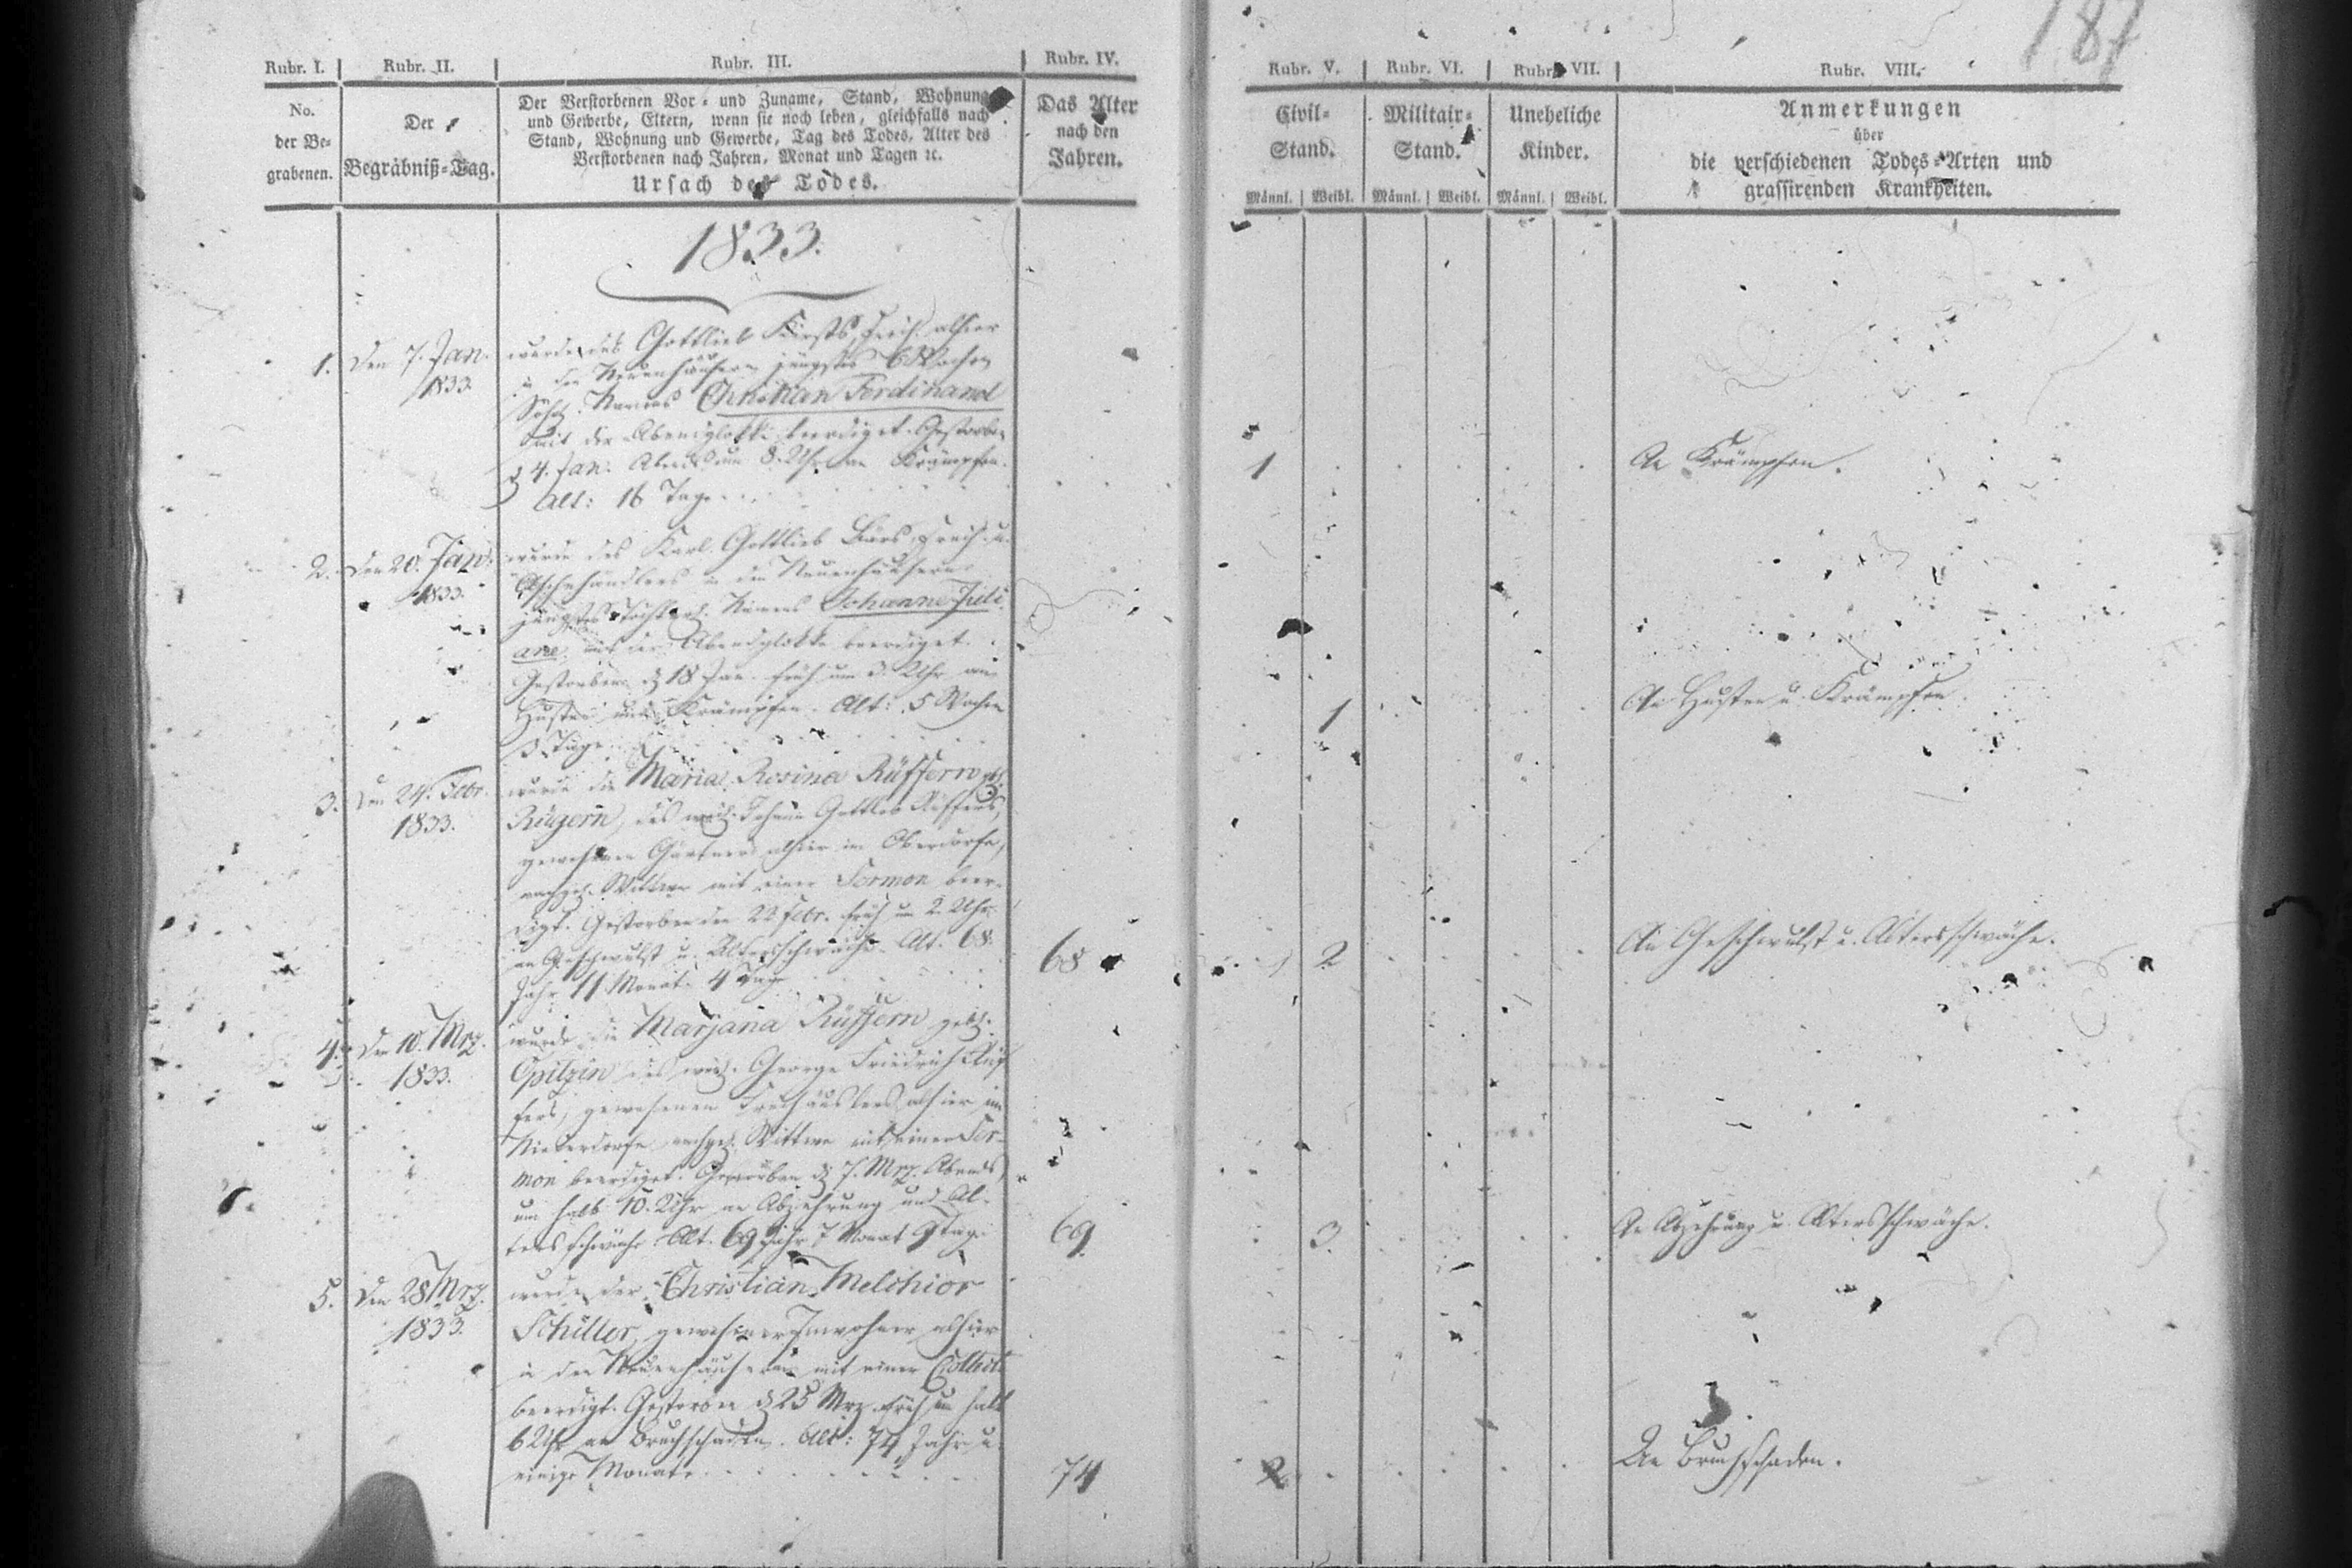 187
Rubr. I. Rubr. II. Rubr. III. Rubr. IV. Rubr. V. Rubr. VI. Rubr. VII. Rubr. VIII.
No.
der Be-
grabenen.
Der
Begräbniß-Tag.
Der Verstorbenen Vor- und Zuname, Stand, Wohnung
und Gewerbe, Eltern, wenn sie noch leben, gleichfalls nach
Stand, Wohnung und Gewerbe, Tag des Todes, Alter des
Verstorbenen nach Jahren, Monat und Tagen ꝛc.
Ursach des Todes.
Das Alter
nach den
Jahren.
Civil-
Stand.
Männl. Weibl.
Militair-
Stand.
Männl. Weibl.
Uneheliche
Kinder.
Männl. Weibl.
Anmerkungen
über
die verschiedenen Todes-Arten und
grassirenden Krankheiten.
1833.
1. Den 7. Jan.
1833.
wurde des Gottlieb alhier
in den Neuenhäusern jüngstes
Namens Christian Ferdinand
mit der Abendglokke beerdiget. Gestorben
4. Jan. Abends um 8. Uhr an Krämpfen.
Alt: 16 Tage
1
An Krämpfen.
2. Den 20. Jan.
1833.
wurde des Karl Gottlieb
in den Neuenhäusern
jüngstes Namens Johanne Juli-
ane, mit der Abendglokke beerdiget.
Gestorben 18 Jan. früh um 3. Uhr an
Husten und Krämpfen. Alt: 5 Wochen
3 Tage.
1
An Husten u. Krämpfen.
3. Den 24. Febr.
1833.
wurde die Maria Rosina Rüffern
des Johann Gottlob Rüffers,
gewesenen Gärtners alhier im Oberdorfe,
Wittwe mit einer Sermon beer-
digt. Gestorben den 22 Febr. früh um 2. Uhr
an Geschwulst u. Altersschwäche. Alt. 68.
Jahr 11 Monat 4 Tage
68
2
An Geschwulst u. Altersschwäche.
4. Den 10. Mrz.
1833.
wurde die Marjana Rüffern
Opitzin des George Friedrich Rüf-
fers, gewesenen Freihäuslers alhier im
Niederdorfe Wittwe mit einer Ser-
mon beerdiget. Gestorben 7. Mrz. Abends
um halb 10. Uhr an Abzehrung und Al-
tersschwäche Alt. 69 Jahr 7 Monat 9 Tag.
69
3.
An Abzehrung u. Altersschwäche.
5. Den 28 Mrz.
1833.
wurde der Christian Melchior
Schiller, gewesener Inwohner alhier
in den Neuenhäusern mit einer
beerdigt. Gestorben 25 Mrz. früh um halb
6 Uhr an Bruchschaden. Alt: 74 Jahr u.
einige Monate.
74
2
An Bruchschaden.